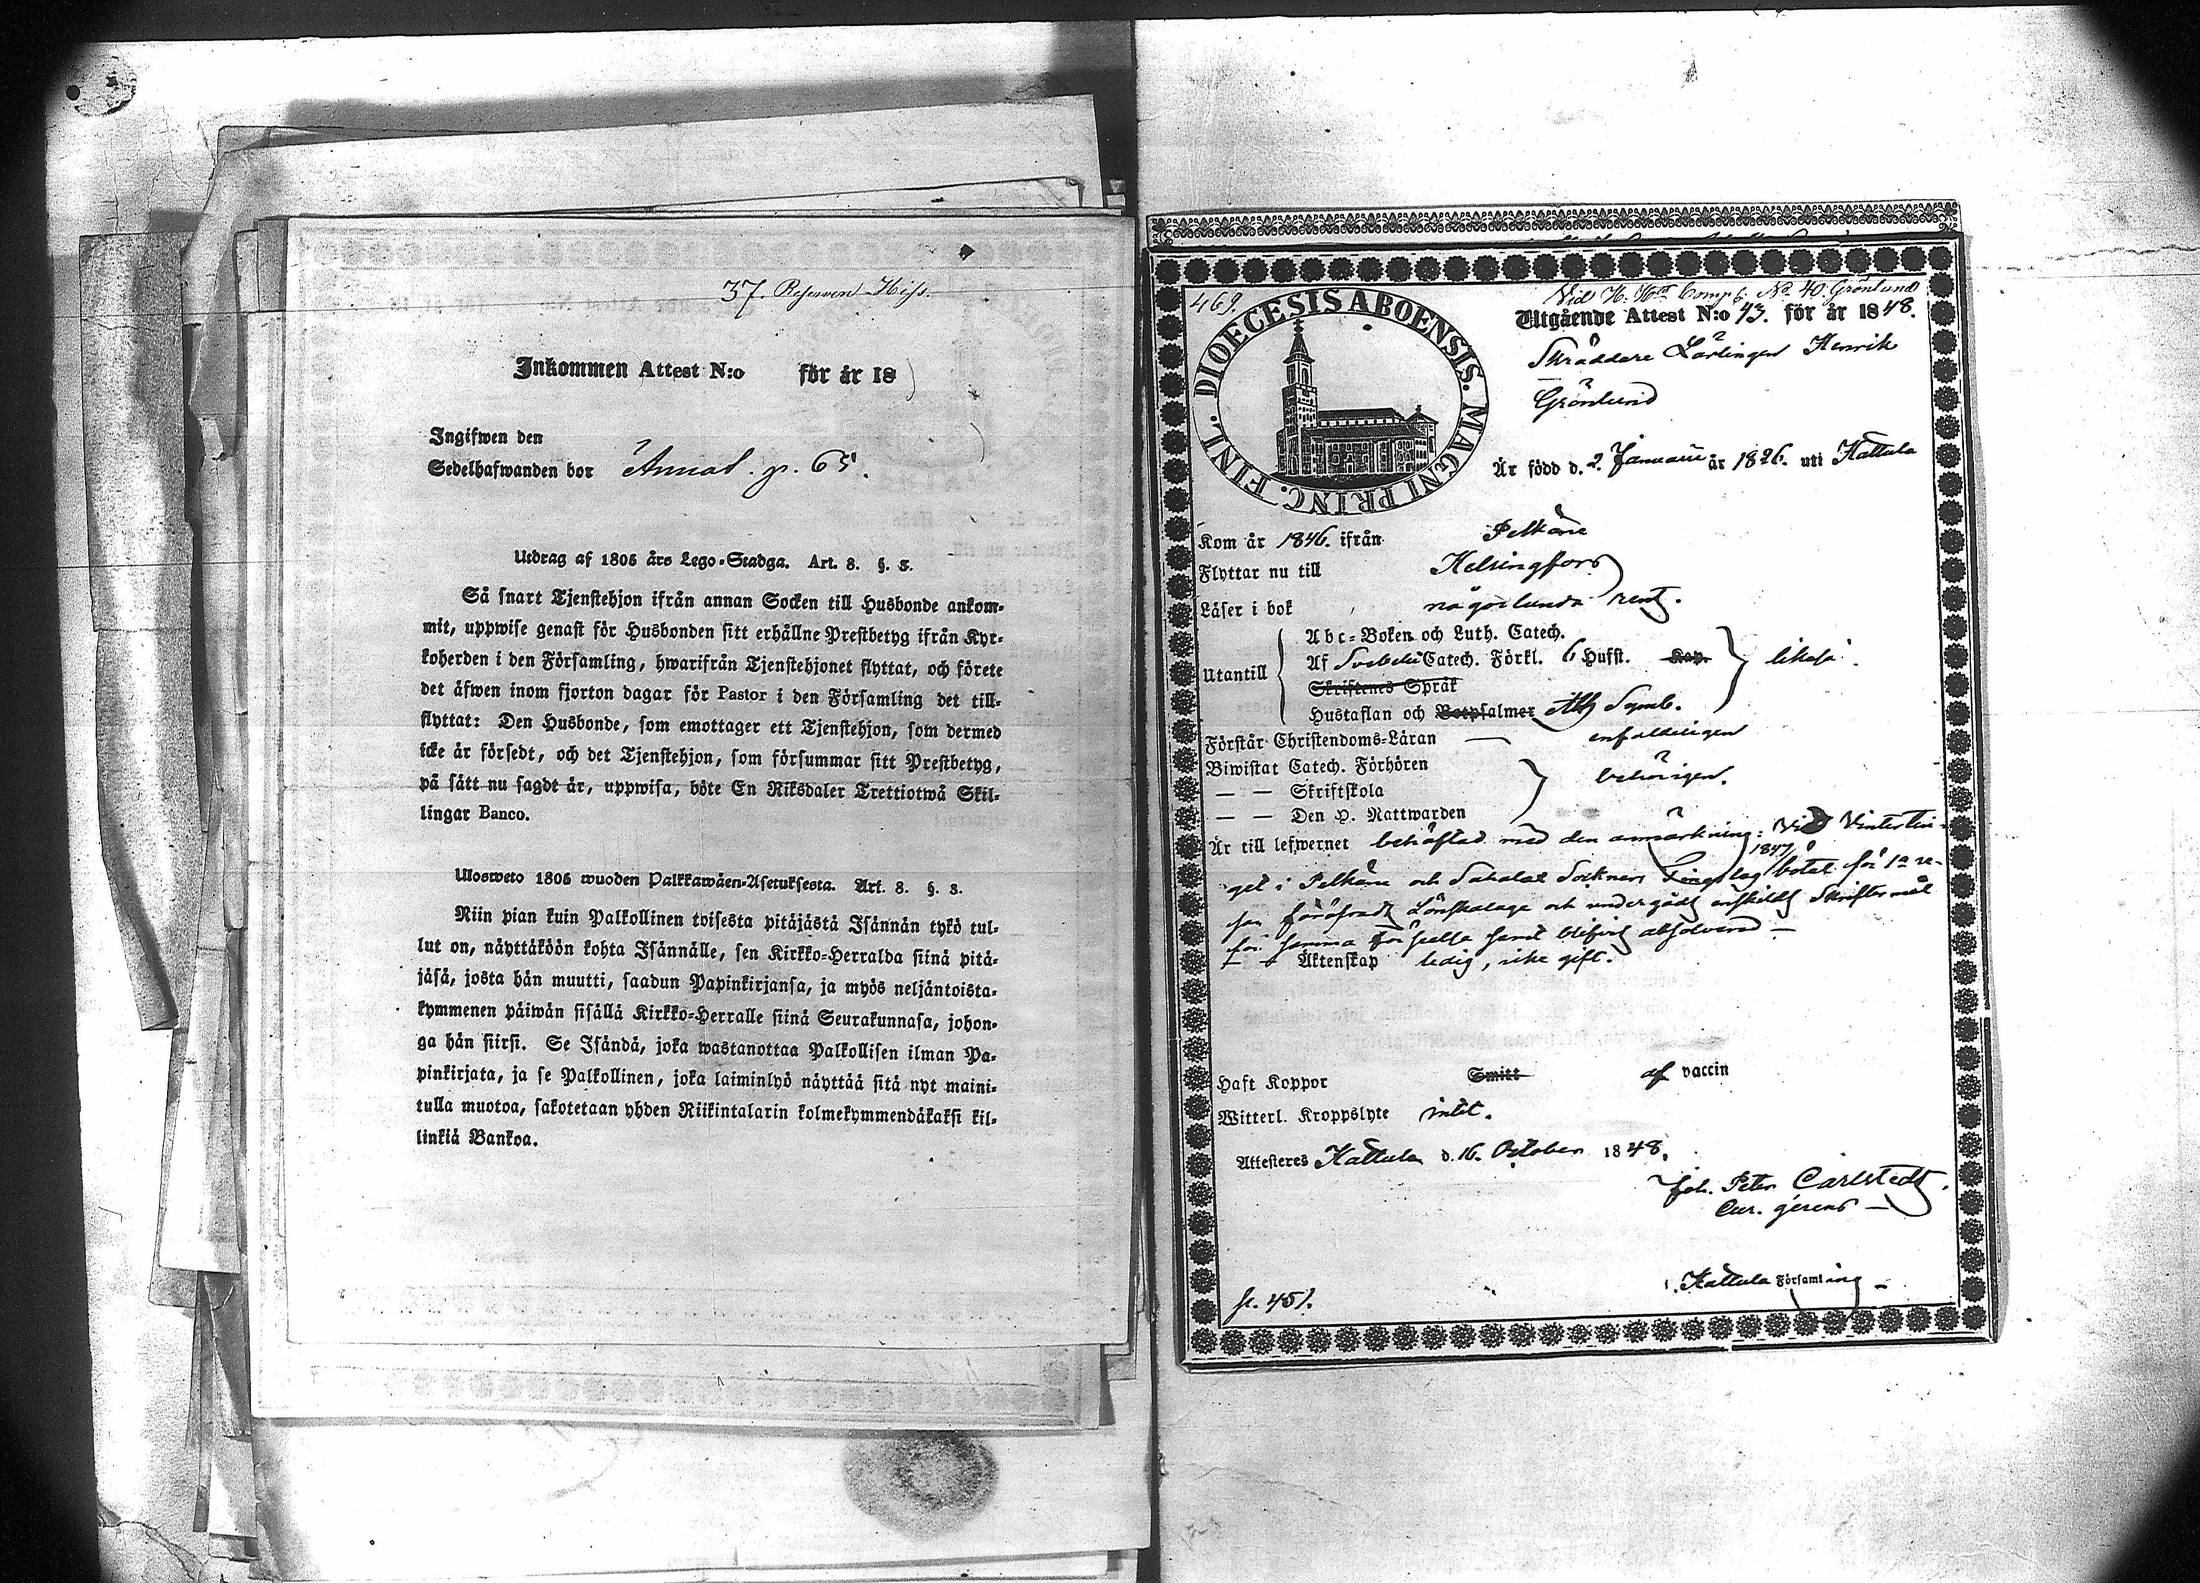 37. Reserven Hiss.
Inkommen Attest N:o för år 18
Ingifwen den
Sedelhafwanden bor Annat. p. 65.
Utdrag af 1805 års Lego-Stadga. Art. 8. §. 3.
Så snart Tjenstehjon ifrån annan Socken till Husbonde ankom-
mit, uppwise genast för Husbonden sitt erhållne Prestbetyg ifrån Kyr-
koherden i den Församling, hwarifrån Tjenstehjonet flyttat, och förete
det äfwen inom fjorton dagar för Pastor i den Församling det till-
flyttat: Den Husbonde, som emottager ett Tjenstehjon, som dermed
icke är försedt, och det Tjenstehjon, som försummar sitt Prestbetyg,
på sätt nu sagdt är, uppwisa, böte En Riksdaler Trettiotwå Skil-
lingar Banco.
Ulosweto 1805 wuoden Palkkawäen-Asetuksesta. Art. 8. §. 3.
Niin pian kuin Palkollinen toisesta pitäjästä Isännän tykö tul-
lut on, näyttäköön kohta Isännälle, sen Kirkko-Herralda siinä pitä-
jäsä, josta hän muutti, saadun Papinkirjansa, ja myös neljäntoista-
kymmenen päiwän sisällä Kirkko-Herralle siinä Seurakunnasa, johon-
ga hän siirsi. Se Isändä, joka wastanottaa Palkollisen ilman Pa-
pinkirjata, ja se Palkollinen, joka laiminlyö näyttää sitä nyt maini-
tulla muotoa, sakotetaan yhden Riikintalarin kolmekymmendäkaksi kil-
linkiä Bankoa.
469.
DIOECESIS ABOENSIS. MAGNI PRINC. FINL.
Vid H. Comp 6. No 40 Grönlund
Utgående Attest N:o 43. för år 1848.
Skräddare Lärlingen Henrik
Grönlund
Är född d. 2. Januarii år 1826. uti Hattula
Kom år 1846. ifrån Pelkäne
Flyttar nu till Helsingfors
Läser i bok någorlunda rent.
Utantill
Abc-Boken och Luth. Catech.
Af Svebelii Catech. Förkl. 6 Hufst. Kap. likaså.
Skriftenes Språk
Hustaflan och Botpsalmer Ath Symb.
Förstår Christendoms-Läran enfaldeligen
Biwistat Catech. Förhören
— — Skriftskola behörigen.
— — Den H. Nattwarden
Är till lefwernet behäftad med den anmärkning: Vid Vintertin-
1847
get i Pelkäne och Sahalax Socknars Tingslag bötat för 1a re-
san föröfvadt Lönskaläge och undergådt enskildt Skriftermål
för samma förseelse samt blifvit absolverad —
— — Äktenskap ledig, icke gift.
Haft Koppor Smitt af vaccin
Witterl. Kroppslyte intet.
Attesteres Hattula d. 16. October 1848.
Joh. Peter Carlstedt.
Cur. gerens —
i Hattula Församling —
p. 451.